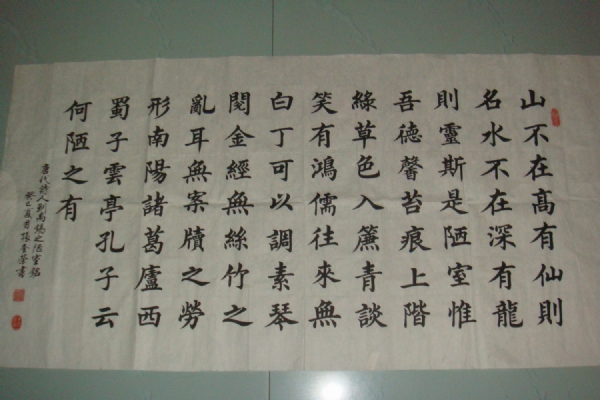 山不在髙有仙則
名水不在深有龍
則靈斯是陋室惟
吾德馨苔痕上階
綠草色入簾青談
笑有鴻儒往來無
白丁可以調素琴
閱金經無絲竹之
亂耳無案牘之勞
形南陽諸葛廬西
蜀子雲亭孔子云
何陋之有
唐代詩人劉禹錫之陋室銘
癸巳夏書